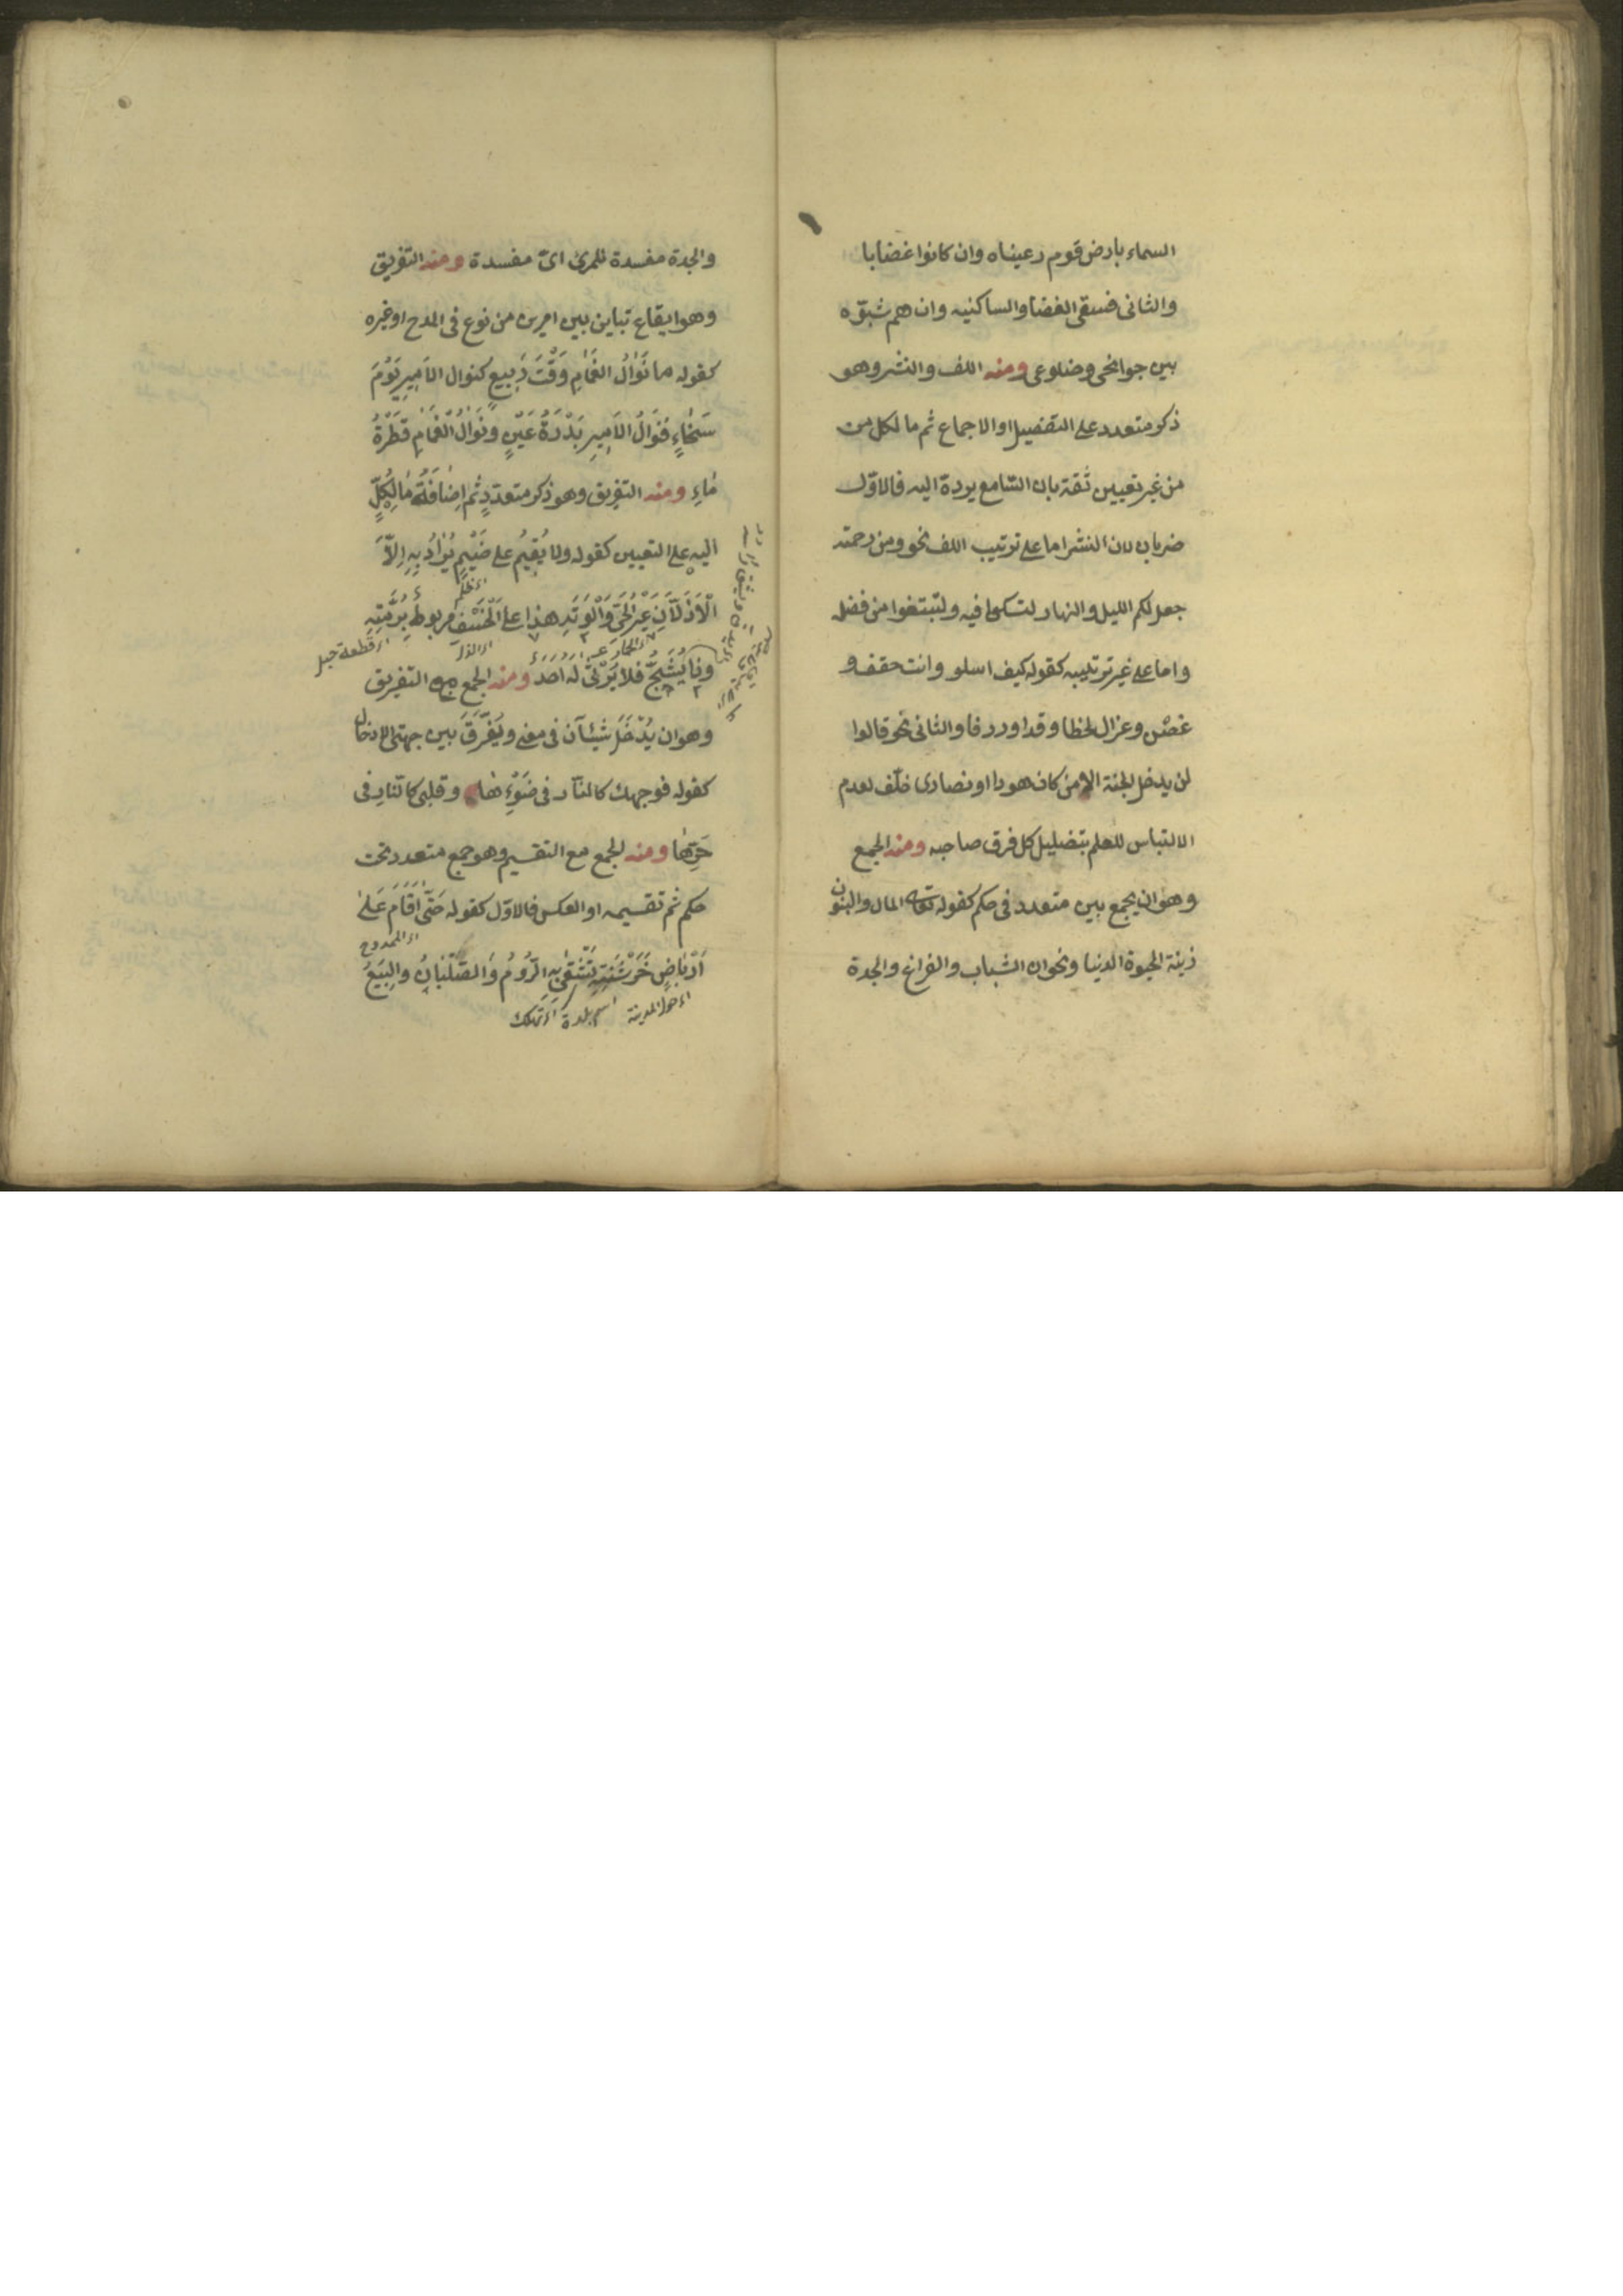 السماء بارض قوم رعيناه وان كانوا غضابا
والثاني فسقى الغضا والساكنيه وان هم شبوه
بين جوانحي وضلوعي ومنه اللف والنشر وهو
ذكر متعدد على التفضيل او الاجماع ثم ما لكل من
من غير تعيين ثقة بان السامع يردة اليه فالاوّل
ضربان لان النشر اما على ترتيب اللف نحو ومن رحمته
جعل لكم الليل والنهار لتسكنوا فيه ولتبتغوا من فضله
واما على غير ترتيبه كقوله كيف اسلو وانت حقف و
غصن وغزال لحظا وقدا وردفا والثاني نحو قالوا
لن يدخل الجنة الا من كان هودا او نصارى فلّف لعدم
الالتباس للعلم بتضليل كل فرق صاحبه ومنه الجمع
وهو ان يجمع بين متعدد في حكم كقوله تعالى المال والبنون
زينة الحيوة الدنيا ونحو ان الشباب والفراغ والجدة
والجدة مفسدة للمرئ اىّ مفسدة ومنه التفريق
وهو ايقاع تباين بين امرين من نوع في المدح او غيره
كقوله ما نَوَالُ الغَمَامِ وَقْتَ رَبِيعٍ كنوال الاَمِيرِ يَوْمَ
سَخَاءٍ فَنَوَالُ الاَمِيرِ بَدْرَةُ عَيْنٍ ونَوَالُ الْغَمَامِ قَطْرَةُ
مَاءِ ومنه التفريق وهو ذكر متعدّدٍ ثم اِضَافَةُ مَا لِكُلٍّ
اليه على التعيين كقوله ولا يُقِيمُ على ضَيْمٍ يُرَادُ بِهِ اِلاَّ
اى ظلم
الْاَذَلَّانِ عَيْرُ الْحَىِّ وَالْوَتَدِ هذا على الْخَسْفِ مربوطٌ بِرُمَّتِهِ
اى الحمار
اى الذل
اى قطعة حبل
وذا يُشَجُّ فلا يَرْثِى له احد ومنه الجمع مع التفريق
وهو ان يُدْخَلَ شَيْئَانِ فى معنى ويُفَرَّقَ بين جهتى الادخال
كقوله فوجهك كالنار فى ضَوْئِهَا وقلبى كالنار فى
حَرِّهَا ومنه الجمع مع التقسيم وهو جمع متعدد تحت
حكم ثم تقسيمه او العكس فالاوّل كقوله حَتَّى اَقَامَ عَلَى
اى الممدوح
اَرْبَاضِ خَرْشَنَةٍ تَشْقَى بِهِ الرُّومُ وَالصُّلْبَانُ والبِيَعُ
اى حول المدينة
اسم بلدة